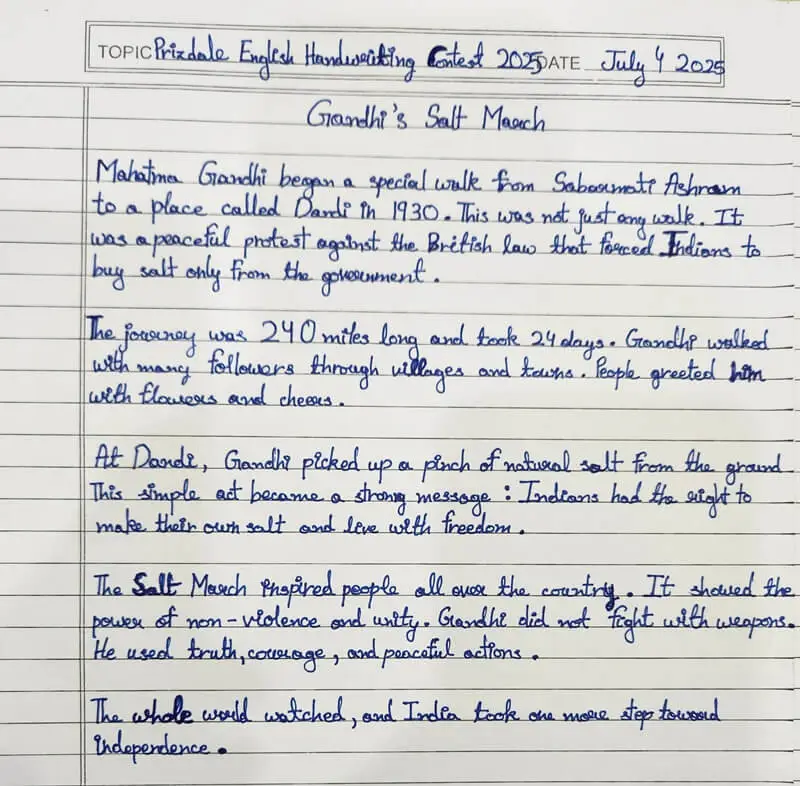 TOPIC Prizdale English Handwriting Contest 2025 DATE July 4 2025
Gandhi's Salt March
Mahatma Gandhi began a special walk from Sabarmati Ashram
to a place called Dandi in 1930. This was not just any walk. It
was a peaceful protest against the British law that forced Indians to
buy salt only from the government.
The journey was 240 miles long and took 24 days. Gandhi walked
with many followers through villages and towns. People greeted him
with flowers and cheers.
At Dandi, Gandhi picked up a pinch of natural salt from the ground
This simple act became a strong message : Indians had the right to
make their own salt and live with freedom.
The Salt March inspired people all over the country. It showed the
power of non-violence and unity. Gandhi did not fight with weapons.
He used truth, courage, and peaceful actions.
The whole world watched, and India took one more step toward
independence.